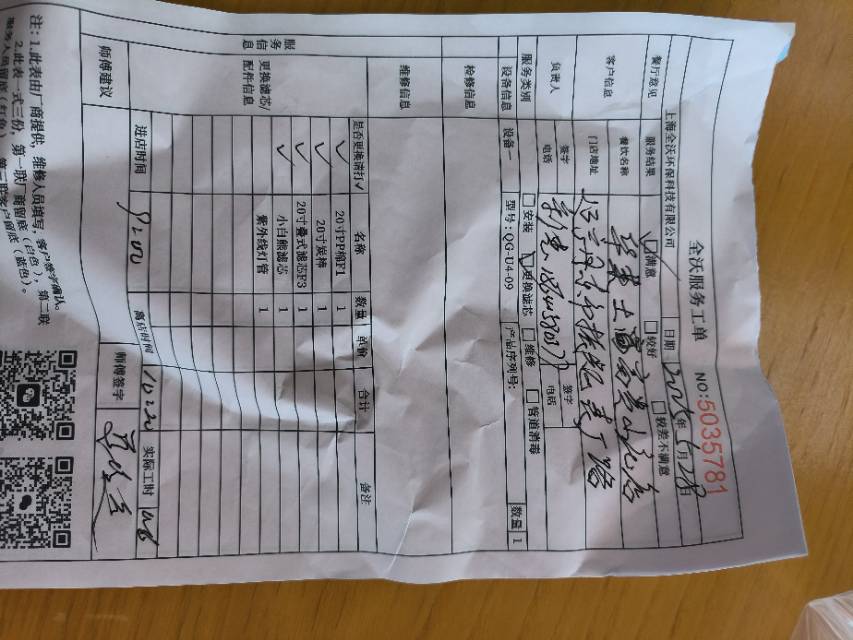 全沃服务工单 NO:5035781
上海全沃环保科技有限公司 日期 2025年5月28日
餐厅意见 服务结果 满意 较好 较差不满意
客户信息 餐饮名称
门店地址
负责人 签字 签字
电话 电话
服务类别 安装 更换滤芯 维修 管道消毒
设备信息 设备一 型号:QG-U4-09 产品序列号: 数量 1
检修信息
维修信息
服务信息
更换滤芯/配件信息
是否更换请打✓ 名称 数量 单价 合计 备注
✓ 20寸PP棉F1 1
✓ 20寸炭棒 1
✓ 20寸叠式滤芯F3 1
✓ 小白熊滤芯 1
紫外线灯管 1
进店时间 9:00 离店时间 10:20 实际工时
师傅建议 师傅签字
注:1.此表由厂商提供,维修人员填写,客户签字确认。
2.此表一式三份,第一联厂商留底(白色),第二联
服务人员留底(红色),第三联客户留底(蓝色)。